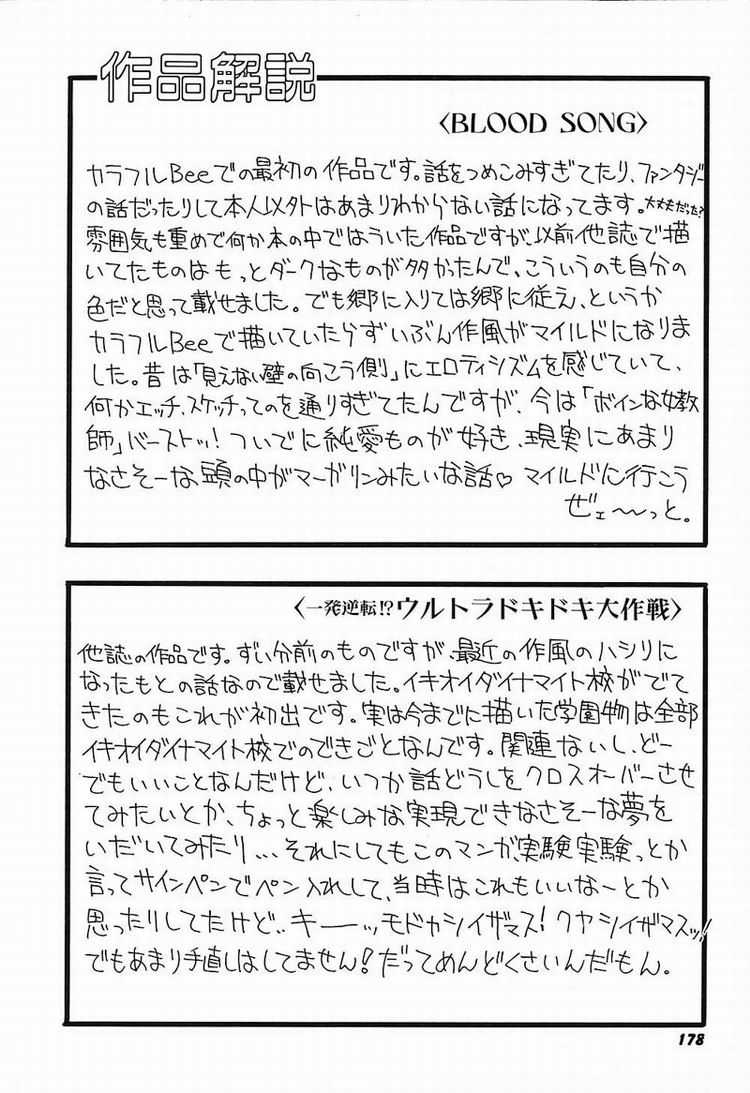 作品解説
〈BLOOD SONG〉
カラフルBeeでの最初の作品です。話をつめこみすぎてたり、ファンタジー
の話だったりして本人以外はあまりわからない話になってます。大丈夫だった?
雰囲気も重めで何か本の中ではういた作品ですが、以前他誌で描
いてたものはもっとダークなものが多かったんで、こういうのも自分の
色だと思って載せました。でも郷に入りては郷に従え、というか
カラフルBeeで描いていたらずいぶん作風がマイルドになりま
した。昔は「見えない壁の向こう側」にエロティシズムを感じていて、
何かエッチ、スケッチってのを通りすぎてたんですが、今は「ボインな女教
師」バーストッ!ついでに純愛ものが好き、現実にあまり
なさそーな、頭の中がマーガリンみたいな話♡マイルドに行こう
ぜェ〜〜っと。
〈一発逆転!?ウルトラドキドキ大作戦〉
他誌の作品です。ずい分前のものですが、最近の作風のハシリに
なったもとの話なので載せました。イキオイダイナマイト校がでて
きたのもこれが初出です。実は今までに描いた学園物は全部
イキオイダイナマイト校でのできごとなんです。関連ないし、どー
でもいいことなんだけど、いつか話どうしをクロスオーバーさせ
てみたいとか、ちょっと楽しみな実現できなさそーな夢を
いだいてみたり...それにしてもこのマンガ、実験実験っとか
言ってサインペンでペン入れして、当時はこれもいいなーとか
思ったりしてたけど..キーーッモドカシイザマス!クヤシイザマスッ!!
でもあまり手直しはしてません!だってめんどくさいんだもん。
178